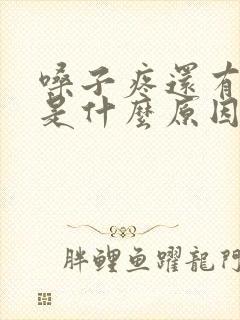 嗓子疼還有
是什麼原因
胖鯉鱼躍龍門